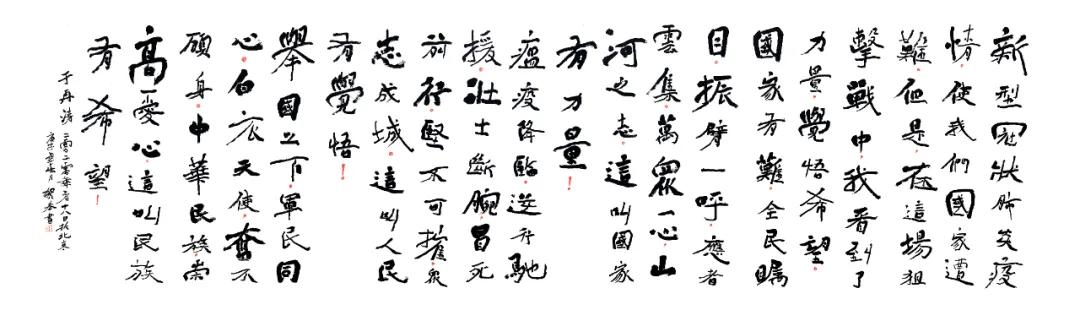 新型冠狀肺炎疫
情.使我們國家遭
難.但是.在這場狙
擊戰中.我看到了
力量.覺悟.希望.
國家有難.全民矚
目.振臂一呼.應者
雲集.萬眾一心.山
河之志.這叫國家
有力量!
瘟疫降臨.逆行馳
援.壯士斷腕.冒死
前行.堅不可摧.眾
志成城.這叫人民
有覺悟!
舉國上下.軍民同
心.白衣天使.奮不
顧身.中華民族.崇
高愛心.這叫民族
有希望!
于再清 二零二零年二月十八日於北京